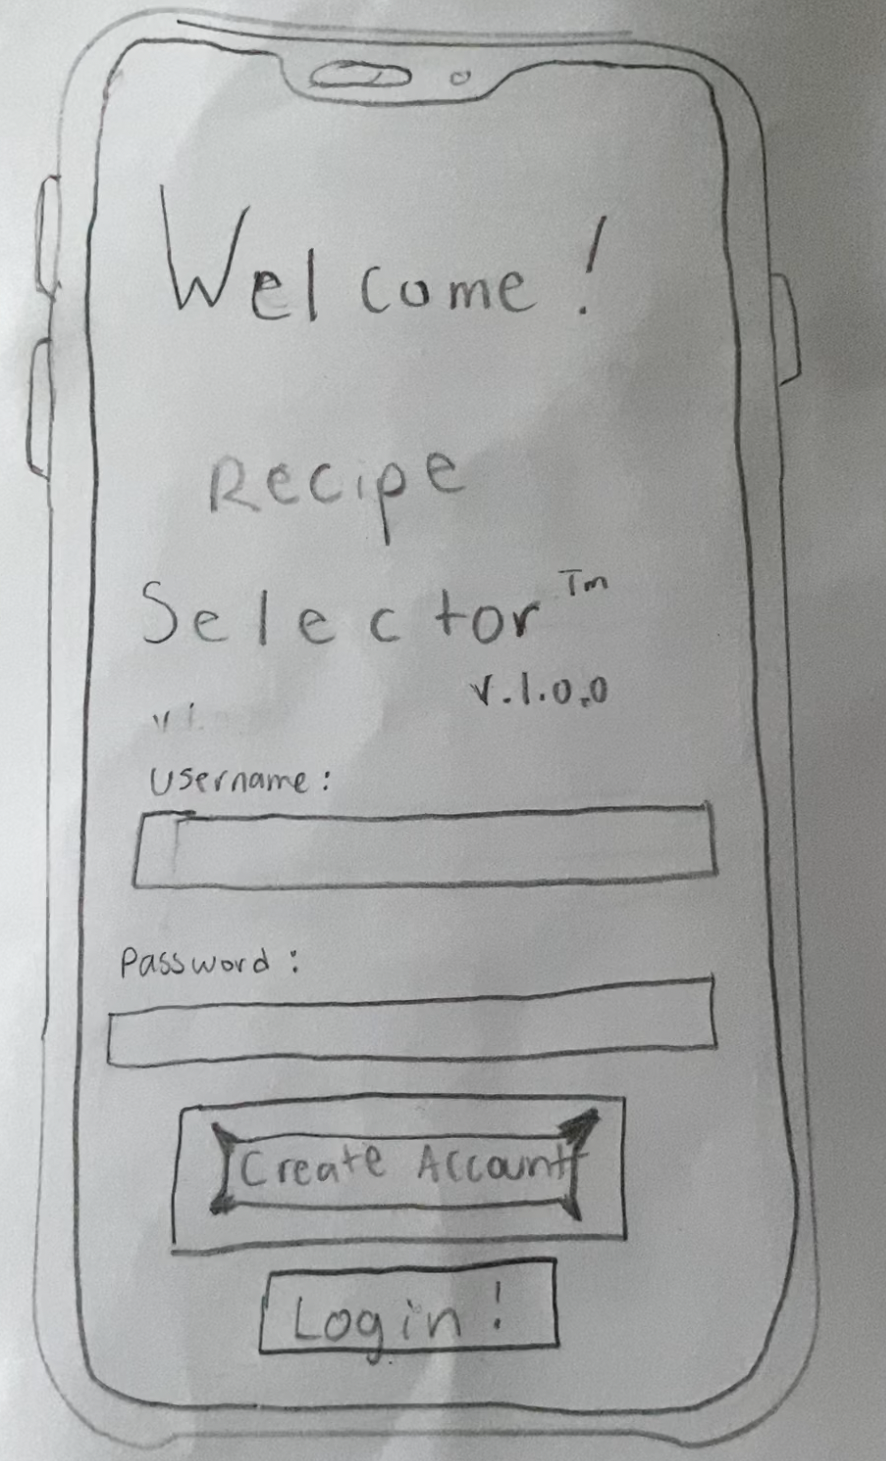 Welcome!
Recipe
Selector™
v.1.0.0
v1.
Username:
Password:
Create Account
Login!